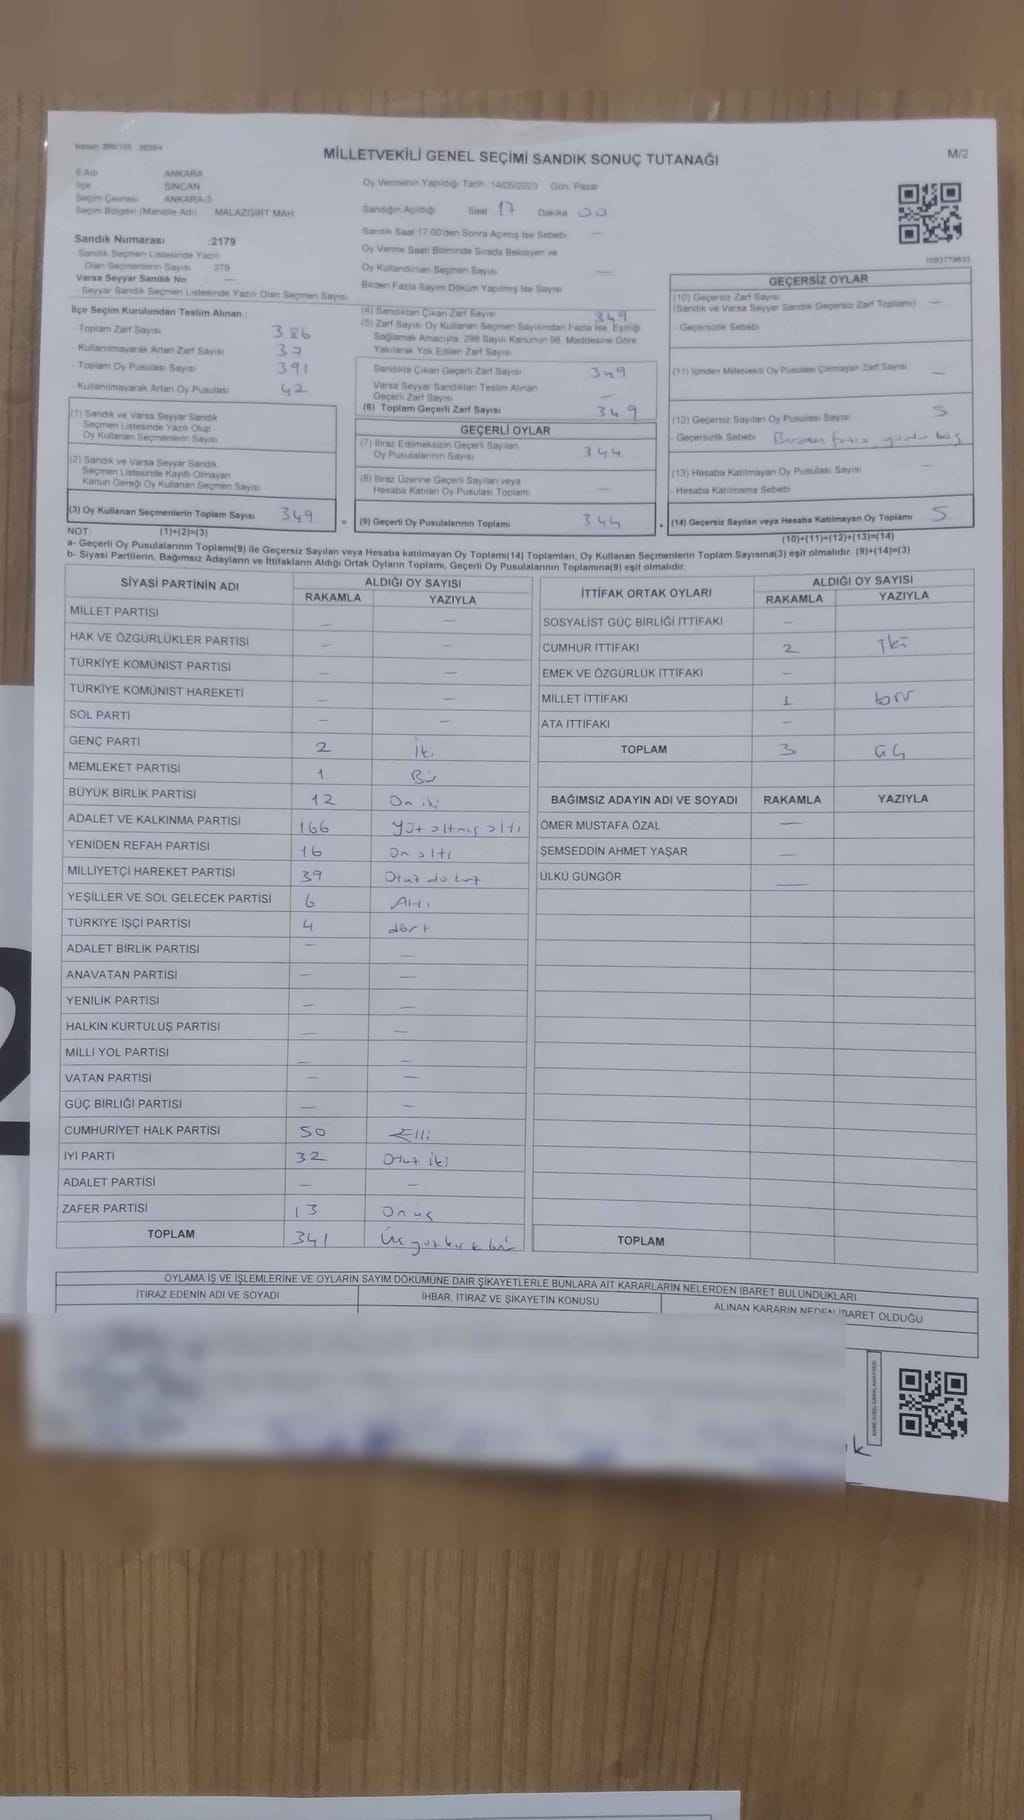 MİLLETVEKİLİ GENEL SEÇİMİ SANDIK SONUÇ TUTANAĞI
M/2
İl Adı ANKARA
İlçe SİNCAN
Seçim Çevresi ANKARA-3
Seçim Bölgesi (Mahalle Adı) MALAZGİRT MAH
Sandık Numarası :2179
- Sandık Seçmen Listesinde Yazılı
Olan Seçmenlerin Sayısı 379
Varsa Seyyar Sandık No —
- Seyyar Sandık Seçmen Listesinde Yazılı Olan Seçmen Sayısı
Oy Vermenin Yapıldığı Tarih 14/05/2023 Gün: Pazar
Sandığın Açıldığı Saat 17 Dakika 00
Sandık Saat 17:00'den Sonra Açılmış İse Sebebi —
Oy Verme Saati Bitiminde Sırada Bekleyen ve
Oy Kullandırılan Seçmen Sayısı —
Birden Fazla Sayım Döküm Yapılmış İse Sayısı
1083779633
İlçe Seçim Kurulundan Teslim Alınan :
- Toplam Zarf Sayısı 386
- Kullanılmayarak Artan Zarf Sayısı 37
- Toplam Oy Pusulası Sayısı 391
- Kullanılmayarak Artan Oy Pusulası 42
(1) Sandık ve Varsa Seyyar Sandık
Seçmen Listesinde Yazılı Olup
Oy Kullanan Seçmenlerin Sayısı
(2) Sandık ve Varsa Seyyar Sandık
Seçmen Listesinde Kayıtlı Olmayan
Kanun Gereği Oy Kullanan Seçmen Sayısı
(3) Oy Kullanan Seçmenlerin Toplam Sayısı 349
(4) Sandıktan Çıkan Zarf Sayısı 349
(5) Zarf Sayısı Oy Kullanan Seçmen Sayısından Fazla İse, Eşitliği
Sağlamak Amacıyla, 298 Sayılı Kanunun 98. Maddesine Göre
Yakılarak Yok Edilen Zarf Sayısı
Sandıkta Çıkan Geçerli Zarf Sayısı 349
Varsa Seyyar Sandıktan Teslim Alınan
Geçerli Zarf Sayısı —
(6) Toplam Geçerli Zarf Sayısı 349
GEÇERLİ OYLAR
(7) İtiraz Edilmeksizin Geçerli Sayılan
Oy Pusulalarının Sayısı 344
(8) İtiraz Üzerine Geçerli Sayılan veya
Hesaba Katılan Oy Pusulası Toplamı —
= (9) Geçerli Oy Pusulalarının Toplamı 344
GEÇERSİZ OYLAR
(10) Geçersiz Zarf Sayısı
(Sandık ve Varsa Seyyar Sandık Geçersiz Zarf Toplamı) —
- Geçersizlik Sebebi
(11) İçinden Milletvekili Oy Pusulası Çıkmayan Zarf Sayısı —
(12) Geçersiz Sayılan Oy Pusulası Sayısı 5
- Geçersizlik Sebebi Birden fazla, yada boş
(13) Hesaba Katılmayan Oy Pusulası Sayısı —
- Hesaba Katılmama Sebebi
+ (14) Geçersiz Sayılan veya Hesaba Katılmayan Oy Toplamı 5
NOT: (1)+(2)=(3)
(10)+(11)+(12)+(13)=(14)
a- Geçerli Oy Pusulalarının Toplamı(9) ile Geçersiz Sayılan veya Hesaba katılmayan Oy Toplamı(14) Toplamları, Oy Kullanan Seçmenlerin Toplam Sayısına(3) eşit olmalıdır. (9)+(14)=(3)
b- Siyasi Partilerin, Bağımsız Adayların ve İttifakların Aldığı Ortak Oyların Toplamı, Geçerli Oy Pusulalarının Toplamına(9) eşit olmalıdır.
SİYASİ PARTİNİN ADI ALDIĞI OY SAYISI
RAKAMLA YAZIYLA
MİLLET PARTİSİ — —
HAK VE ÖZGÜRLÜKLER PARTİSİ — —
TÜRKİYE KOMÜNİST PARTİSİ — —
TÜRKİYE KOMÜNİST HAREKETİ — —
SOL PARTİ — —
GENÇ PARTİ 2 İki
MEMLEKET PARTİSİ 1 Bir
BÜYÜK BİRLİK PARTİSİ 12 On iki
ADALET VE KALKINMA PARTİSİ 166 Yüz altmış altı
YENİDEN REFAH PARTİSİ 16 On altı
MİLLİYETÇİ HAREKET PARTİSİ 39 Otuz dokuz
YEŞİLLER VE SOL GELECEK PARTİSİ 6 Altı
TÜRKİYE İŞÇİ PARTİSİ 4 dört
ADALET BİRLİK PARTİSİ — —
ANAVATAN PARTİSİ — —
YENİLİK PARTİSİ — —
HALKIN KURTULUŞ PARTİSİ — —
MİLLİ YOL PARTİSİ — —
VATAN PARTİSİ — —
GÜÇ BİRLİĞİ PARTİSİ — —
CUMHURİYET HALK PARTİSİ 50 Elli
İYİ PARTİ 32 Otuz iki
ADALET PARTİSİ — —
ZAFER PARTİSİ 13 On üç
TOPLAM 341 Üç yüz kırk bir
İTTİFAK ORTAK OYLARI ALDIĞI OY SAYISI
RAKAMLA YAZIYLA
SOSYALİST GÜÇ BİRLİĞİ İTTİFAKI —
CUMHUR İTTİFAKI 2 İki
EMEK VE ÖZGÜRLÜK İTTİFAKI —
MİLLET İTTİFAKI 1 bir
ATA İTTİFAKI —
TOPLAM 3 üç
BAĞIMSIZ ADAYIN ADI VE SOYADI RAKAMLA YAZIYLA
ÖMER MUSTAFA ÖZAL —
ŞEMSEDDİN AHMET YAŞAR —
ÜLKÜ GÜNGÖR —
TOPLAM
OYLAMA İŞ VE İŞLEMLERİNE VE OYLARIN SAYIM DÖKÜMÜNE DAİR ŞİKAYETLERLE BUNLARA AİT KARARLARIN NELERDEN İBARET BULUNDUKLARI
İTİRAZ EDENİN ADI VE SOYADI İHBAR, İTİRAZ VE ŞİKAYETİN KONUSU ALINAN KARARIN NEDEN İBARET OLDUĞU